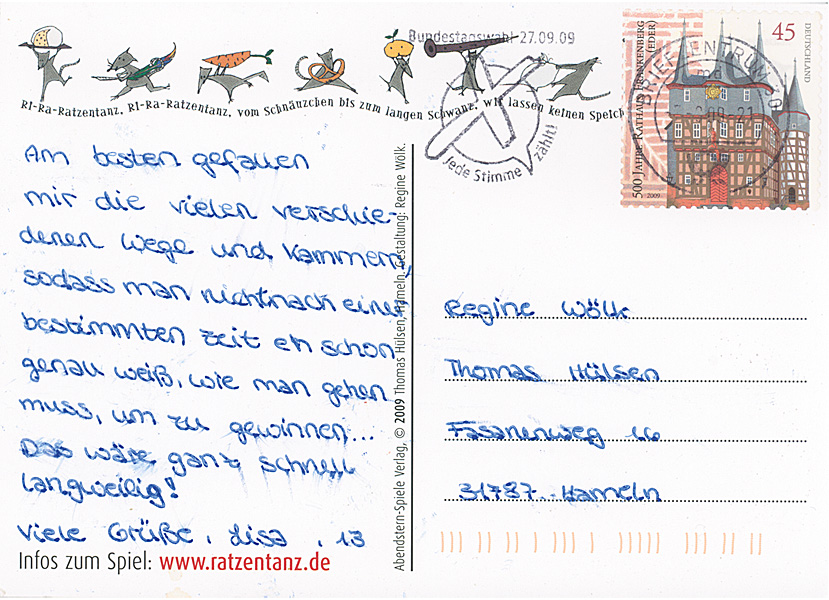 RI-Ra-Ratzentanz, RI-Ra-Ratzentanz, vom Schnäuzchen bis zum langen Schwanz, wir lassen keinen Speich
Bundestagswahl 27.09.09
Jede Stimme zählt!
BRIEFZENTRUM
45
DEUTSCHLAND
500 JAHRE RATHAUS FRANKENBERG (EDER)
2009
Am besten gefallen
mir die vielen verschie-
denen Wege und Kammern,
sodass man nicht nach einer
bestimmten Zeit eh schon
genau weiß, wie man gehen
muss, um zu gewinnen...
Das wäre ganz schnell
langweilig!
Viele Grüße, Lisa, 13
Infos zum Spiel: www.ratzentanz.de
Abendstern-Spiele Verlag, © 2009 Thomas Hülsen, Hameln, Gestaltung: Regine Wölk.
Regine Wölk
Thomas Hülsen
Fasanenweg 16
31787 Hameln